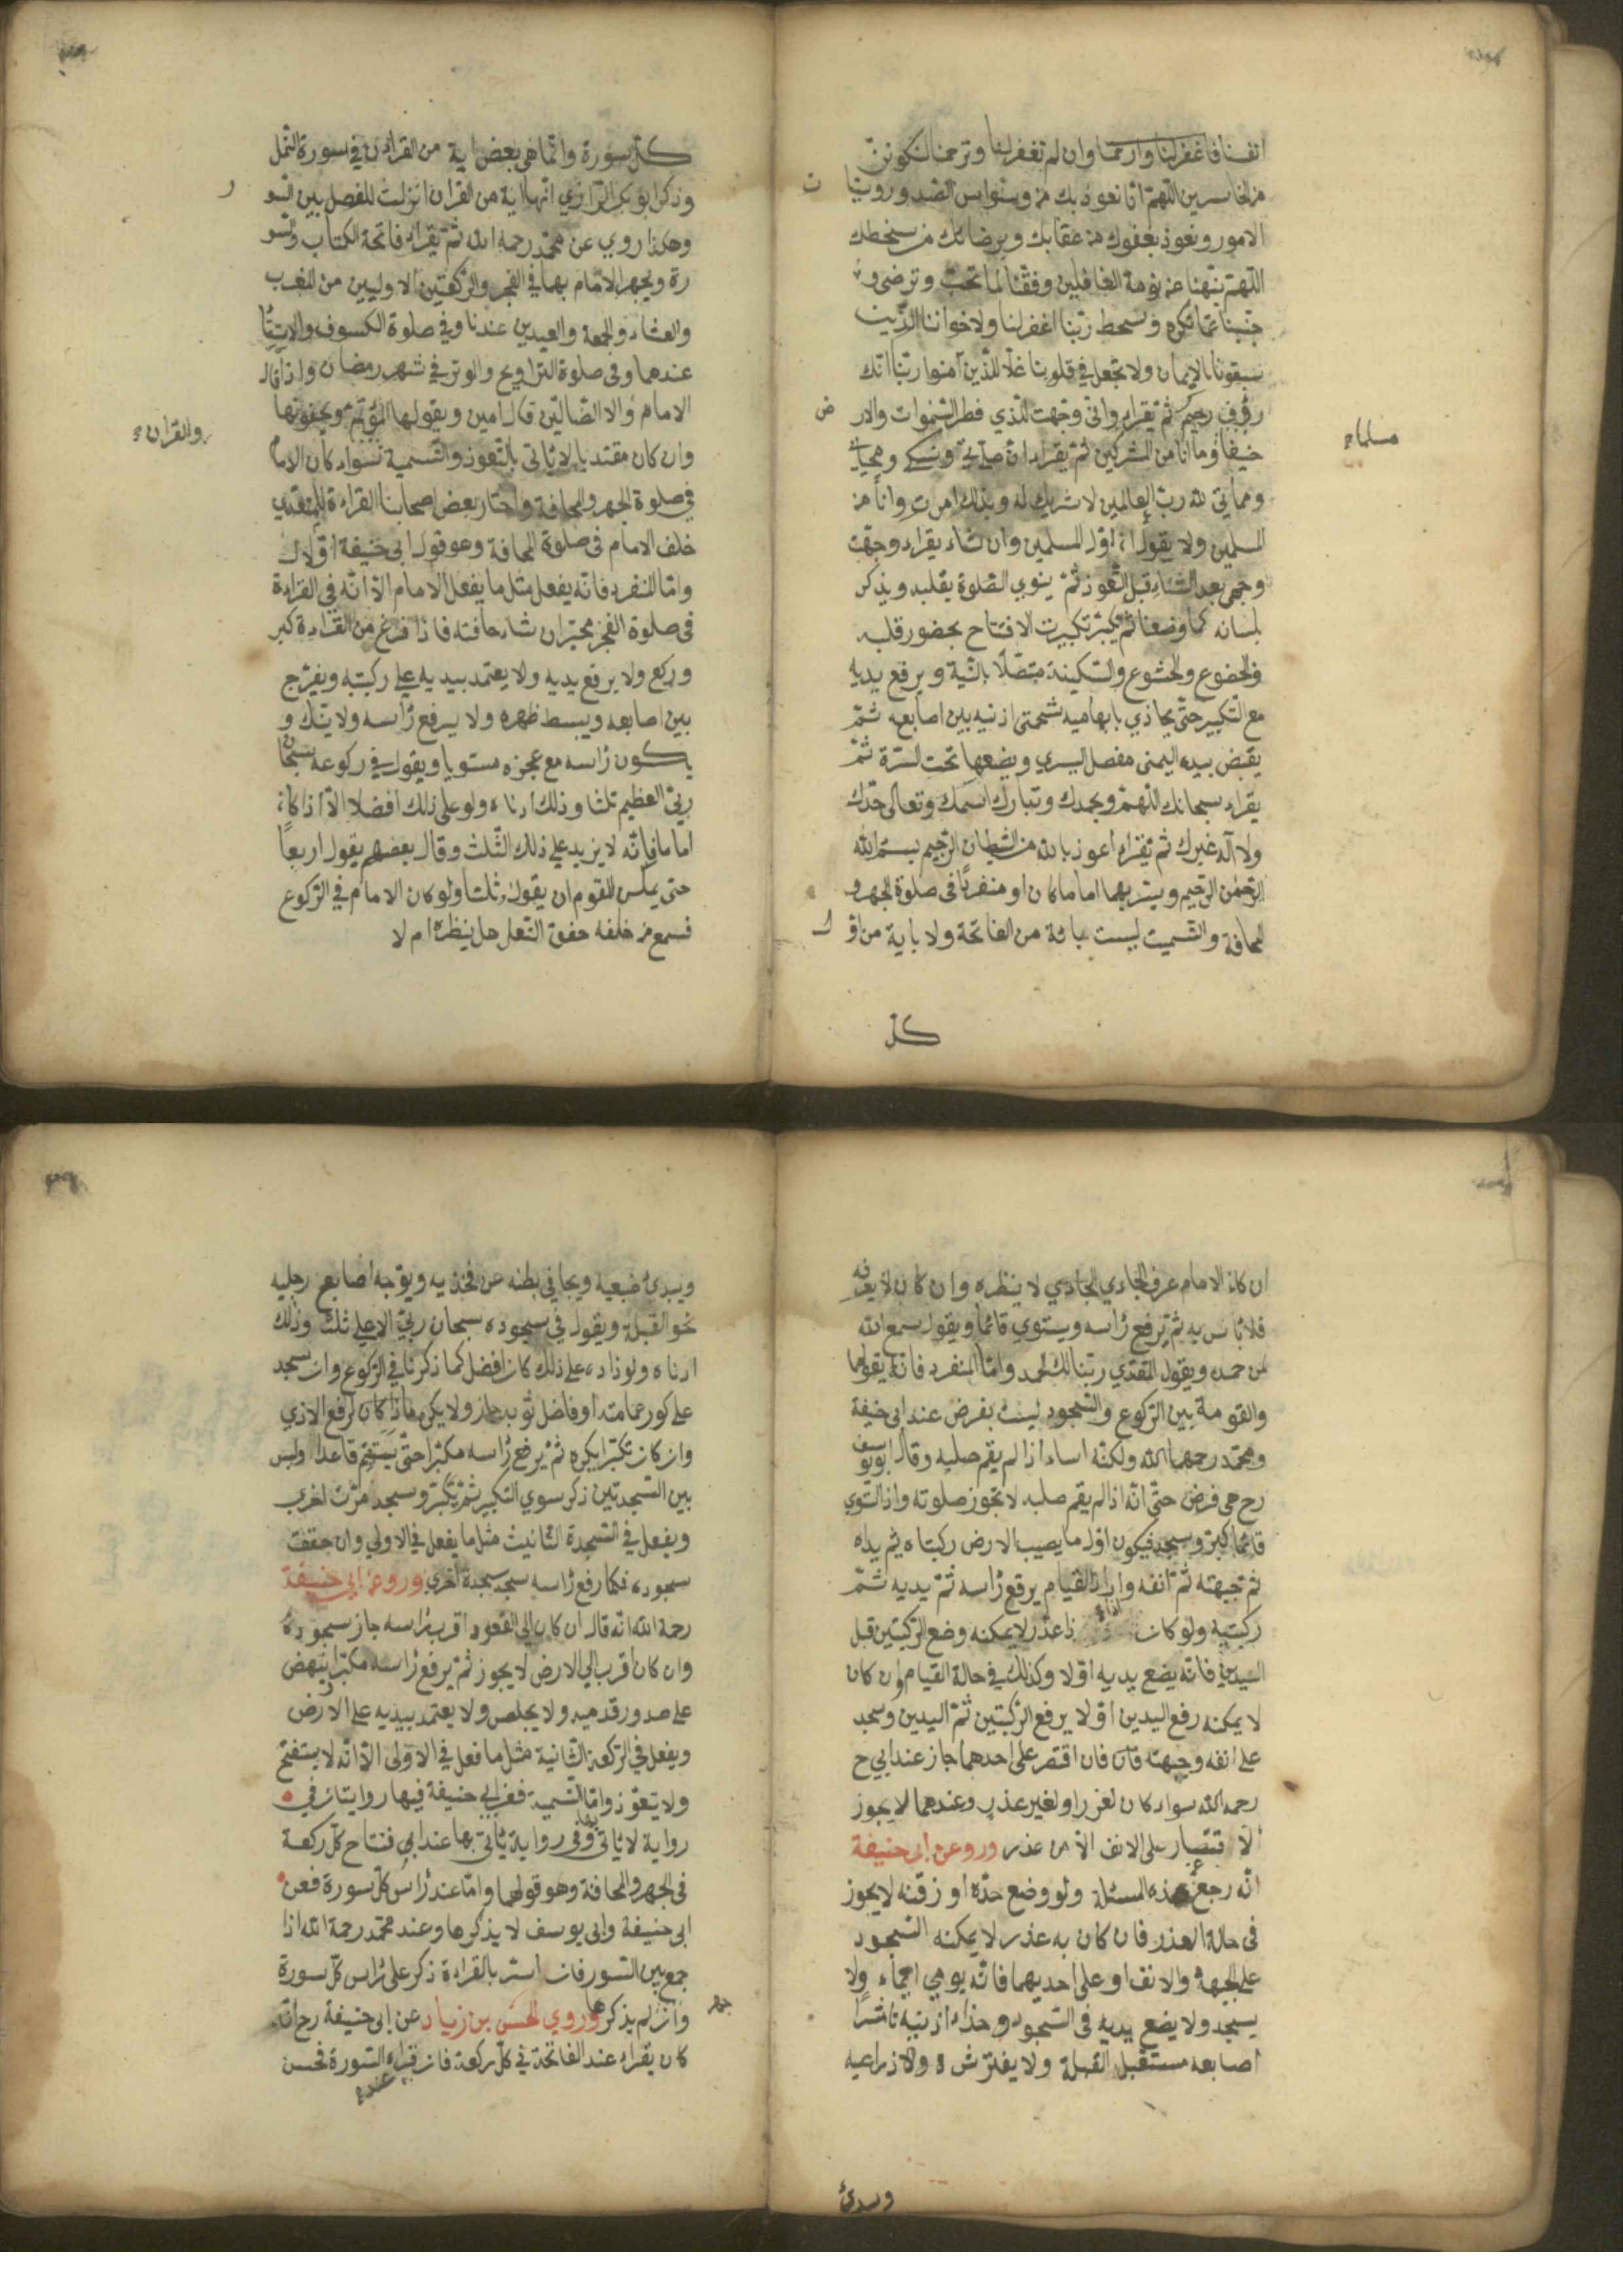 انفسنا فاغفرلنا وارحمنا وان لم تغفرلنا وترحمنا لنكونن
من الخاسرين اللهم انا نعوذ بك من وسواس الصدور
الامور ونعوذ بعفوك من عقابك وبرضائك من سخطك
اللهم نبهنا عن نومة الغافلين ووفقنا لما تحب وترضى و
جنبنا عما تكره وتسخط ربنا اغفرلنا ولاخواننا الذين
سبقونا بالايمان ولا تجعل في قلوبنا غلا للذين آمنوا ربنا انك
رؤف رحيم ثم يقراء واني وجهت للذي فطر السموات والارض
حنيفا وما انا من المشركين ثم يقراء ان صلاتي ونسكي ومحياي
مسلما
ومماتي لله رب العالمين لا شريك له وبذلك امرت وانا من
المسلمين ولا يقول انا اول المسلمين وان شاء يقراء وجهت
وجهي بعد الثناء قبل التعوذ ثم ينوي الصلوة بقلبه ويذكر
بلسانه كما وضعنا ثم يكبر تكبيرت الافتاح بحضور قلبه
والخضوع والخشوع والسكينة متصلا بالنية ويرفع يديه
مع التكبير حتى يحاذي بابهاميه شحمتي اذنيه بين اصابعه ثم
يقبض بيده اليمنى مفصل اليسري ويضعها تحت السرة ثم
يقراء سبحانك اللهم وبحمدك وتبارك اسمك وتعالى جدك
ولا اله غيرك ثم يقراء اعوذ بالله من الشيطان الرجيم بسم الله
الرحمن الرحيم ويسر بهما اماما كان او منفردا في صلوة الجهر و
المخافة والتسميت ليست باية من الفاتحة ولا باية من اول
كل
كل سورة وانما هي بعض اية من القراءن في سورة النمل
وذكر ابو بكر الرازي انها اية من القران انزلت للفصل بين السو
وهكذا روي عن محمد رحمه الله ثم يقراء فاتحة الكتاب والسو
رة ويجهر الامام بها في الفجر والركعتين الاوليين من المغرب
والعشاء والجمعة والعيدين عندنا وفي صلوة الكسوف والاستسقا
عندهما وفى صلوة التراويح والوتر في شهر رمضان واذا قال
الامام ولا الضالين قال امين ويقولها المؤتم ويخفونها
والقران
وان كان مقتديا لا ياتي بالتعوذ والتسمية سواء كان الامام
في صلوة الجهر والمخافة واختار بعض اصحابنا القراءة للمقتدي
خلف الامام في صلوة المخافة وهو قول ابي حنيفة اولا
واما المنفرد فانه يفعل مثل ما يفعل الامام الا انه في القراءة
في صلوة الفجر مخير ان شاء خافته فاذا فرغ من القراءة كبر
وركع ولا يرفع يديه ولا يعتمد بيديه على ركبتيه ويفرج
بين اصابعه ويبسط ظهره ولا يرفع رأسه ولا ينكس و
يكون رأسه مع عجزه مستويا ويقول في ركوعه سبحان
ربي العظيم ثلثا وذلك ادناه ولو على ذلك افضلا الا اذا كان
اماما فانه لا يزيد على ذلك الثلث وقال بعضهم يقول اربعا
حتى يمكن للقوم ان يقول ثلثا ولو كان الامام في الركوع
فسمع من خلفه خفق النعل هل ينظره ام لا
ان كان الامام عرف الجادي لا ينظره وان كان لا يعرفه
فلا باس به ثم يرفع رأسه ويستوي قائما ويقول سمع الله
لمن حمده ويقول المقتدي ربنا لك الحمد واما المنفرد فانه يقولهما
والقومة بين الركوع والسجود ليست بفرض عند ابي حنيفة
ومحمد رحمهما الله ولكنه اساء اذا لم يقم صلبه وقال ابو يوسف
رح هي فرض حتى انه اذا لم يقم صلبه لا تجوز صلوته واذا استوي
قائما كبر وسجد فيكون اول ما يصيب الارض ركبتاه ثم يداه
ثم جبهته ثم انفه واراد القيام يرفع رأسه ثم يديه ثم
ركبتيه ولو كان ذا عذر لا يمكنه وضع الركبتين قبل
اليدين فانه يضع يديه اولا وكذلك في حالة القيام وان كان
لا يمكنه رفع اليدين اولا يرفع الركبتين ثم اليدين وسجد
على انفه وجبهته فان اقتصر على احدهما جاز عند ابي ح
رحمه الله سواء كان لعذر او لغير عذر وعندهما لا يجوز
الاقتصار على الانف الا من عذر وروعن ابي حنيفة
انه رجع عن هذه المسئلة ولو وضع خده او ذقنه لا يجوز
في حالة العذر فان كان به عذر لا يمكنه السجود
على الجبهة والانف او على احديهما فانه يومي ايماء ولا
يسجد ولا يضع يديه في السجود وحذاء اذنيه ناشرا
اصابعه مستقبل القبلة ولا يفترش ذراعيه
ويبدئ
ويبدئ ضبعيه ويجافي بطنه عن فخذيه ويوجه اصابع رجليه
نحو القبلة ويقول في سجوده سبحان ربي الاعلى ثلث وذلك
ادناه ولو زاده على ذلك كان افضل كما ذكرنا في الركوع وان سجد
على كور عمامته او فاضل ثوبه جاز ولا يكره اذا كان لرفع الاذي
وان كان تكبرا يكره ثم يرفع رأسه مكبرا حتى يستتم قاعدا وليس
بين السجدتين ذكر سوي التكبير ثم يكبر وسجد مرت اخري
ويفعل في السجدة الثانيت مثل ما يفعل في الاولي وان خفف
سجوده فكما رفع رأسه سجد سجدة اخري وروعن ابي حنيفة
رحمة الله انه قال ان كان الى القعود اقرب رأسه جاز سجوده
وان كان اقرب الي الارض لا يجوز ثم يرفع رأسه مكبرا ينهض
على صدور قدميه ولا يجلس ولا يعتمد بيديه على الارض
ويفعل في الركعة الثانية مثل ما فعل في الاولى الا انه لا يستفتح
ولا يتعوذ واما التسمية فعن ابي حنيفة فيها روايتان في
رواية لا ياتي بها وفي رواية ياتي بها عند افتتاح كل ركعة
في الجهر والمخافة وهو قولهما واما عند رأس كل سورة فعن
ابي حنيفة وابي يوسف لا يذكرها وعند محمد رحمة الله اذا
جمع بين السور فان اسر بالقراءة ذكر على رأس كل سورة
جهر
وان لم يذكرها وروي الحسن بن زياد عن ابي حنيفة رح انه
كان يقراء عند الفاتحة في كل ركعة فان قراء السورة فحسن
عنده